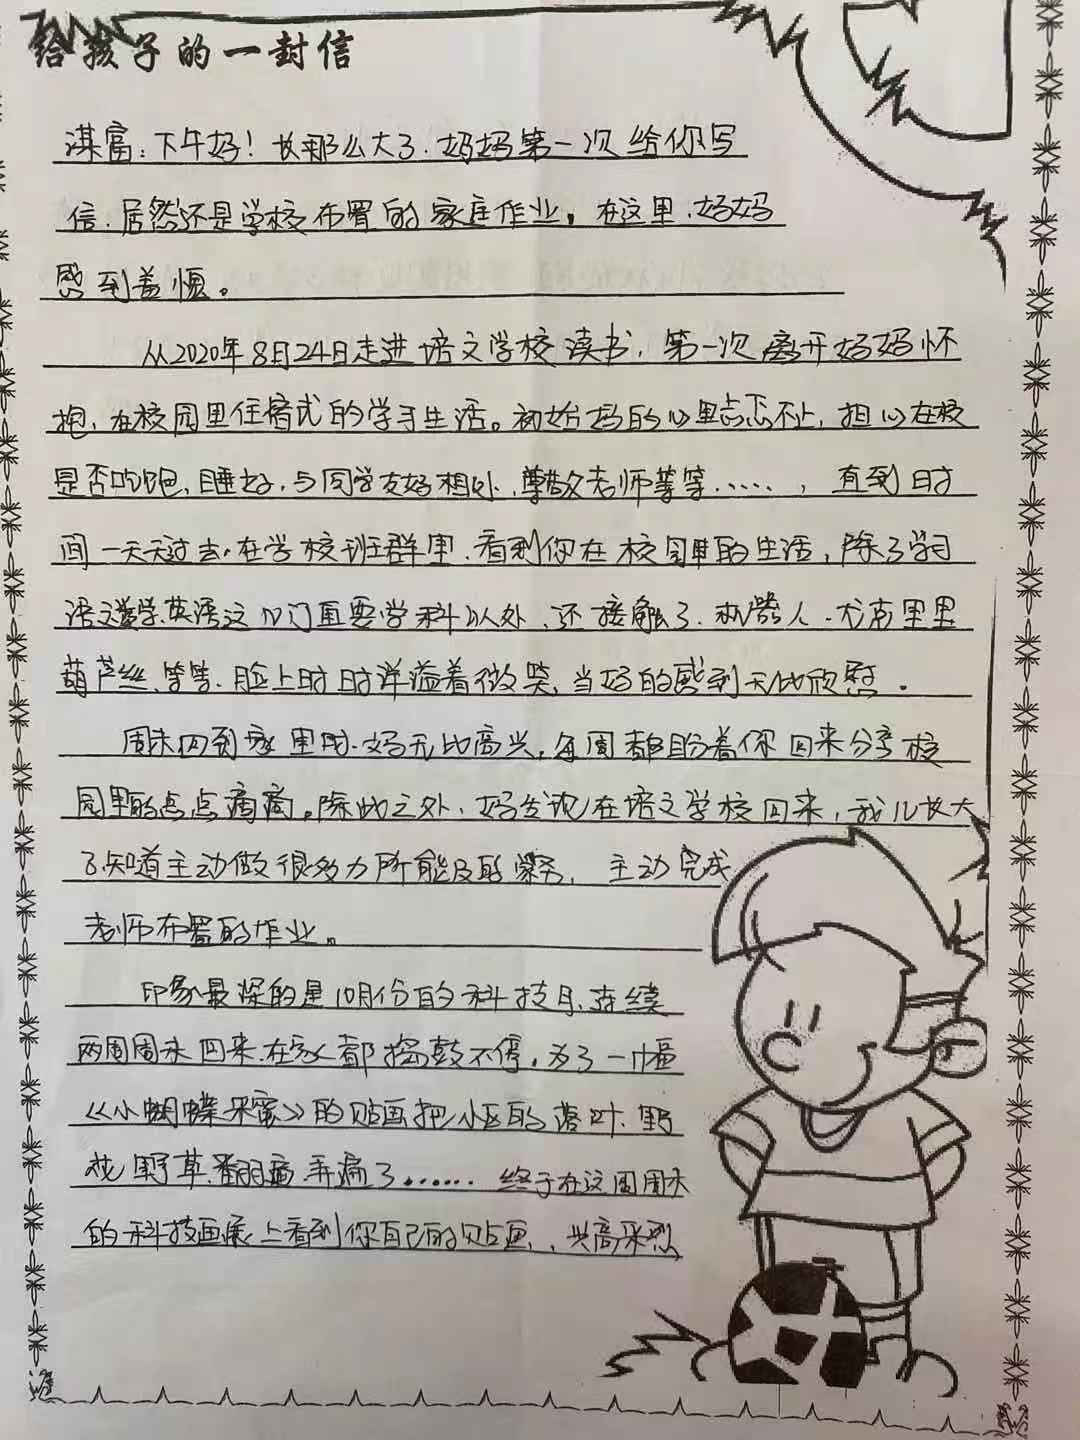 给孩子的一封信
淇富：下午好！长那么大了.妈妈第一次给你写
信.居然还是学校布置的家庭作业。在这里.妈妈
感到羞愧。
从2020年8月24日走进培文学校读书，第一次离开妈妈怀
抱，在校园里住宿式的学习生活。初始妈的心里忐忑不上，担心在校
是否吃饱、睡好，与同学友好相处、尊敬老师等等……，直到时
间一天天过去.在学校班群里.看到你在校园里的生活，除了学习
语文数学英语这几门重要学科以外、还接触了.机器人.尤克里里
葫芦丝、等等.脸上时时洋溢着微笑、当妈的感到无比欣慰.
周末回到家里时.妈无比高兴，每周都盼着你回来分享校
园里的点点滴滴。除此之外、妈发现在培文学校回来，我儿长大
了.知道主动做很多力所能及的家务， 主动完成
老师布置的作业。
印象最深的是10月份的科技月.连续
两周周末回来.在家都捣鼓不停，为了一幅
《小蝴蝶采蜜》的贴画把小区的落叶.野
花野草翻遍弄遍了…… 终于在这周周末
的科技画展上看到你自己的贴画，兴高采烈